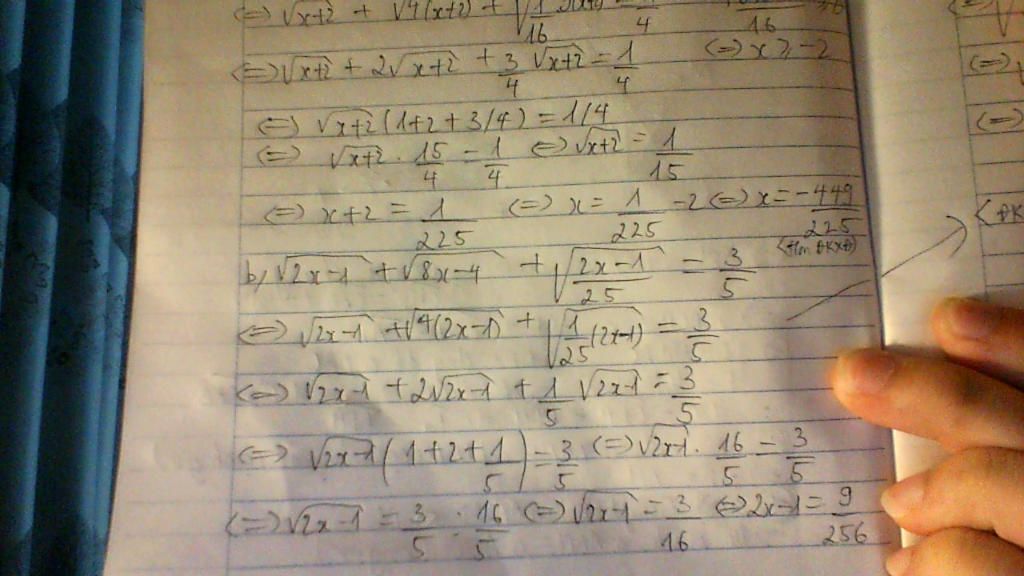 (=) √x+2 + √4(x+2) + √1/16
(=) √x+2 + 2√x+2 + 3/4 √x+2 = 1/4 (=) x ≥ -2
(=) √x+2 (1+2+3/4) = 1/4
(=) √x+2 . 15/4 = 1/4 (=) √x+2 = 1/15
(=) x+2 = 1/225 (=) x = 1/225 -2 (=) x = -449/225
b, √2x-1 + √8x-4 + √2x-1/25 = 3/5
(=) √2x-1 + √4(2x-1) + √1/25(2x-1) = 3/5
(=) √2x-1 + 2√2x-1 + 1/5 √2x-1 = 3/5
(=) √2x-1 (1+2+1/5) = 3/5 (=) √2x-1 . 16/5 = 3/5
(=) √2x-1 = 3/5 . 16/5 (=) √2x-1 = 3/16 (=) 2x-1 = 9/256